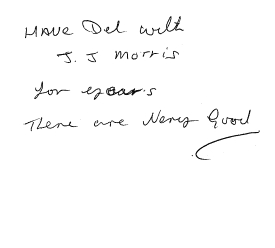 HAVE Del with
J. J Morris
for years
There are Very Good